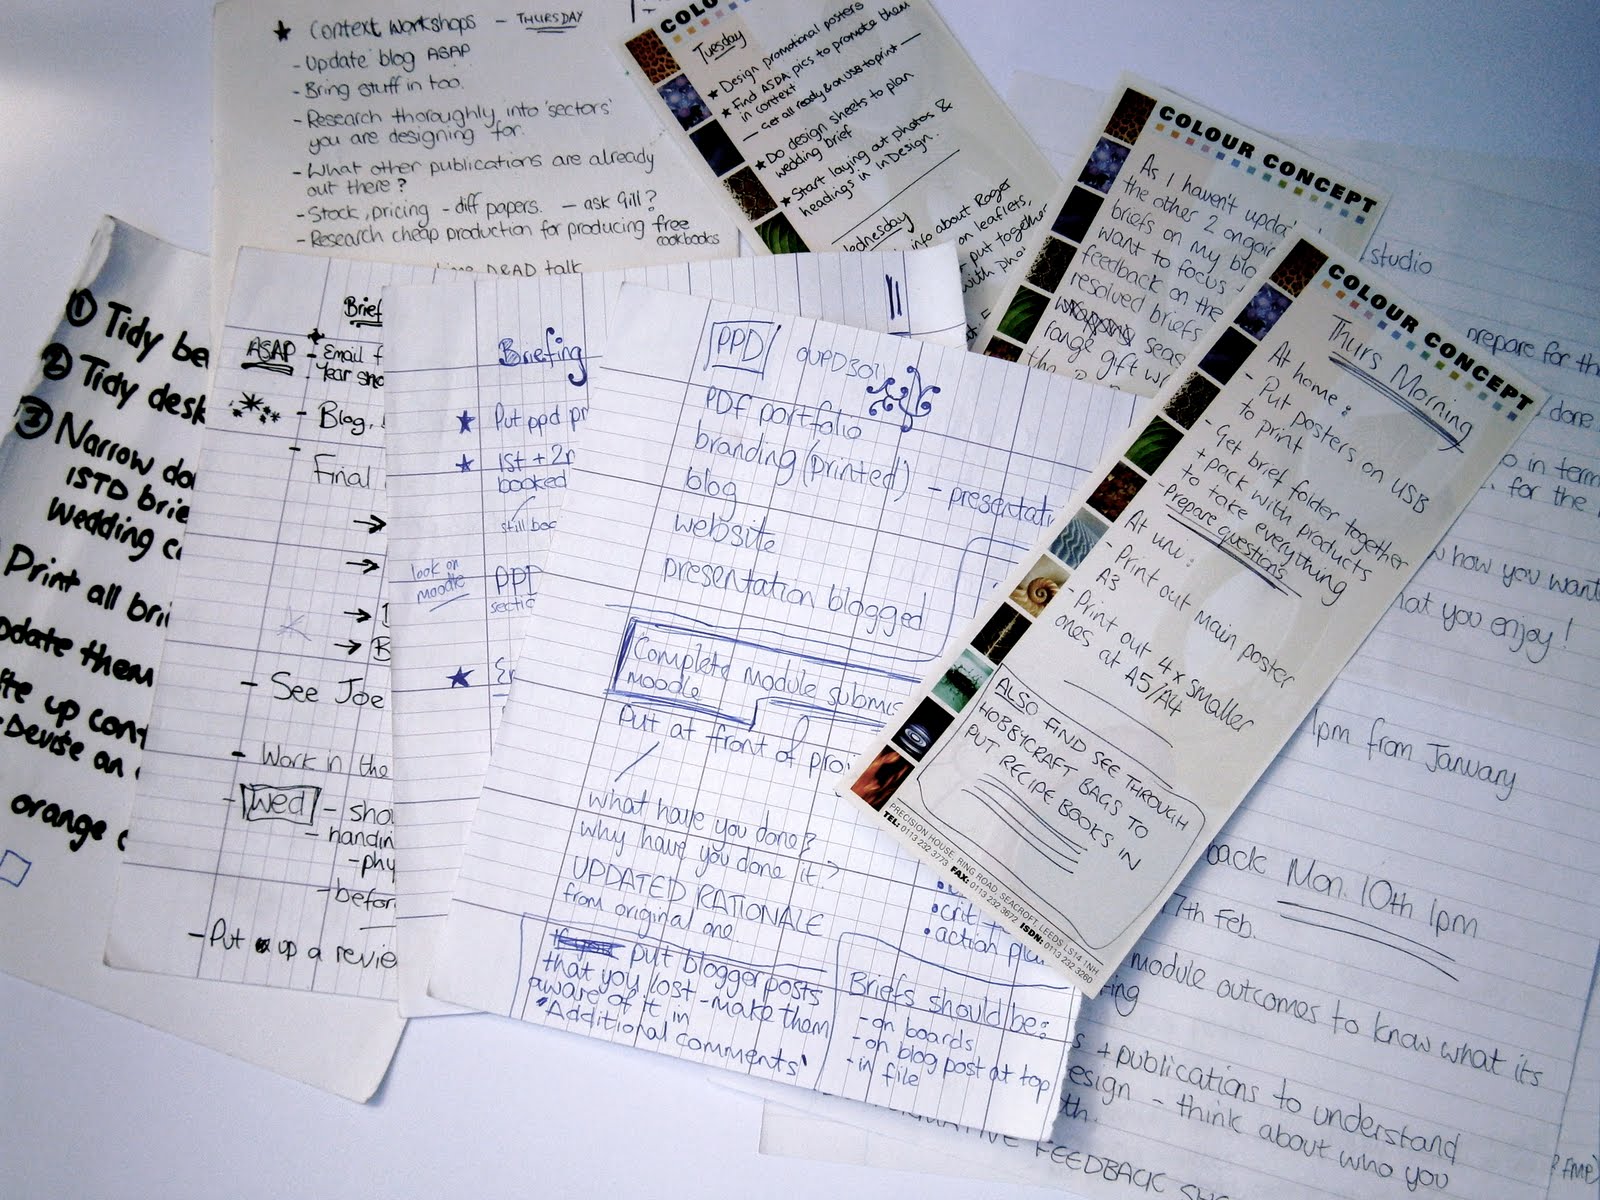 ★ Context workshops - THURSDAY
- Update blog ASAP
- Bring stuff in too.
- Research thoroughly into 'sectors'
you are designing for.
- What other publications are already
out there?
- Stock, pricing - diff papers. - ask Gill?
- Research cheap production for producing free
cookbooks
talk
COLOUR
Tuesday
★ Design promotional posters
★ Find ASDA pics to promote them
in context
- Get all ready & on USB to print -
★ Do design sheets to plan
wedding brief
★ Start laying out photos &
headings in InDesign.
info about Roger
on leaflets,
put together
COLOUR CONCEPT
As I haven't
the other 2
briefs on my
want to focus
feedback on the
resolved briefs
range gift
COLOUR CONCEPT
Thurs Morning
At home:
- Put posters on USB
to print
- Get brief folder together
+ pack with products
to take everything
- Prepare questions
At uni:
- Print out main poster
A3
- Print out 4x smaller
ones at A5/A4
ALSO FIND SEE THROUGH
HOBBYCRAFT BAGS TO
PUT RECIPE BOOKS IN
PRECISION HOUSE, RING ROAD, SEACROFT, LEEDS LS14 1NH
TEL: 0113 232 3773 FAX: 0113 232 3672 ISDN: 0113 232 3260
① Tidy
② Tidy desk
③ Narrow
ISTD
wedding
Print all
them
up
- Devise an
orange
Brief
ASAP - Email
Year
- Blog,
Final
- See Joe
- Work in the
- Wed -
-
- Put up a
Briefing
★ Put ppd
★ 1st +
booked
still
look on
moodle
PPD
★
PPD OUPD301
PDF portfolio
branding (printed)
blog
website
presentation blogged
Complete module
moodle
Put at front of
what have you done?
why have you done it?
UPDATED RATIONALE
from original one.
put blogger posts
that you lost - make them
aware of it in
"Additional comments'
• action
Briefs should be:
- on boards
- on blog post at top
- in file
studio
prepare for
done
in
for the
how you want
what you enjoy!
1pm from January
back Mon. 10th 1pm
7th Feb.
module outcomes to know what its
+ publications to understand
- think about who you
FEEDBACK